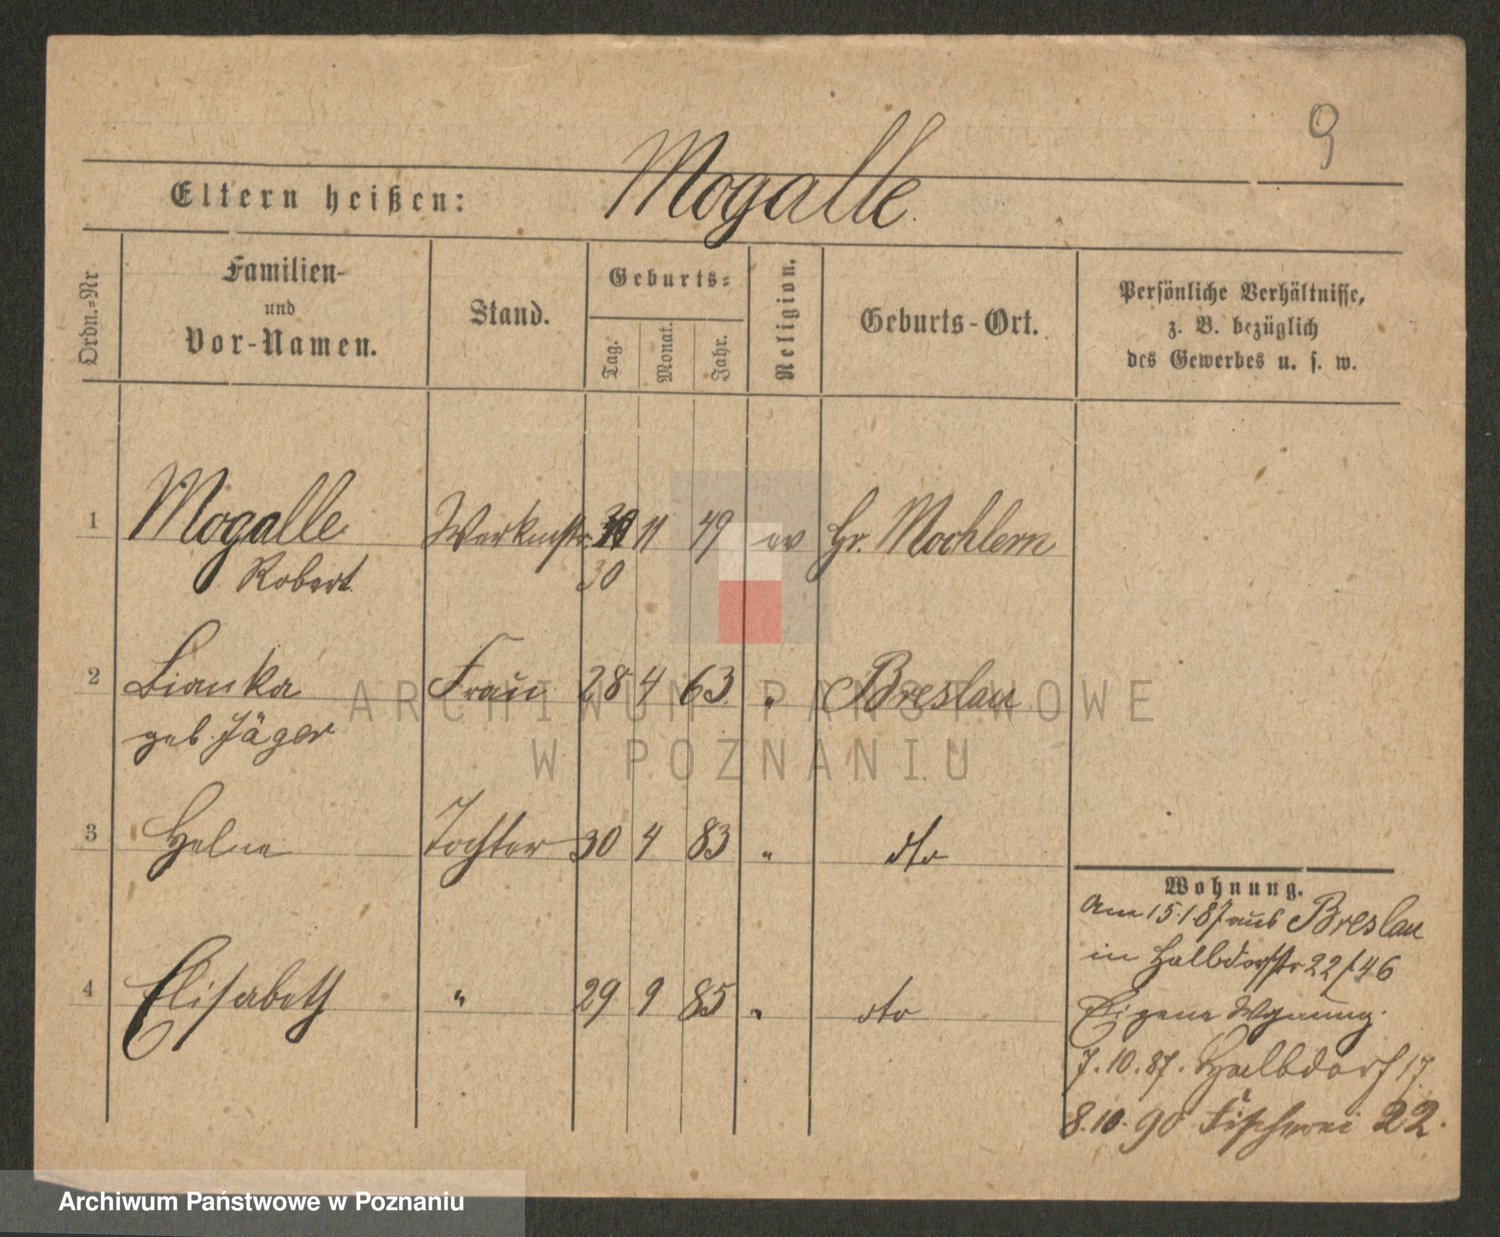 9
Eltern heißen: Mogalle.
Ordn.-Nr
Familien-
und
Vor-Namen.
Stand.
Geburts-
Tag.
Monat.
Jahr.
Religion.
Geburts-Ort.
Persönliche Verhältnisse,
z. B. bezüglich
des Gewerbes u. s. w.
1 Mogalle Werkmstr. 11 49 ev Gr. Mochbern
Robert. 30
2 Bianka Frau 28 4 63 " Breslau
geb. Jäger
3 Helene Tochter 30 4 83 " dto
4 Elisabeth " 29 9 85 " dto
Wohnung.
Am 15.1.87 aus Breslau
in Halbdorfstr 22/46
Eigene Wohnung.
7.10.87. Halbdorf 17
8.10.90 Fischerei 22.
ARCHIWUM PAŃSTWOWE
W POZNANIU
Archiwum Państwowe w Poznaniu